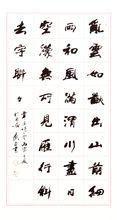 亂雲如獸出山前細
雨和風滿渭川盡日
空濛無所見雁行斜
去字聯聯